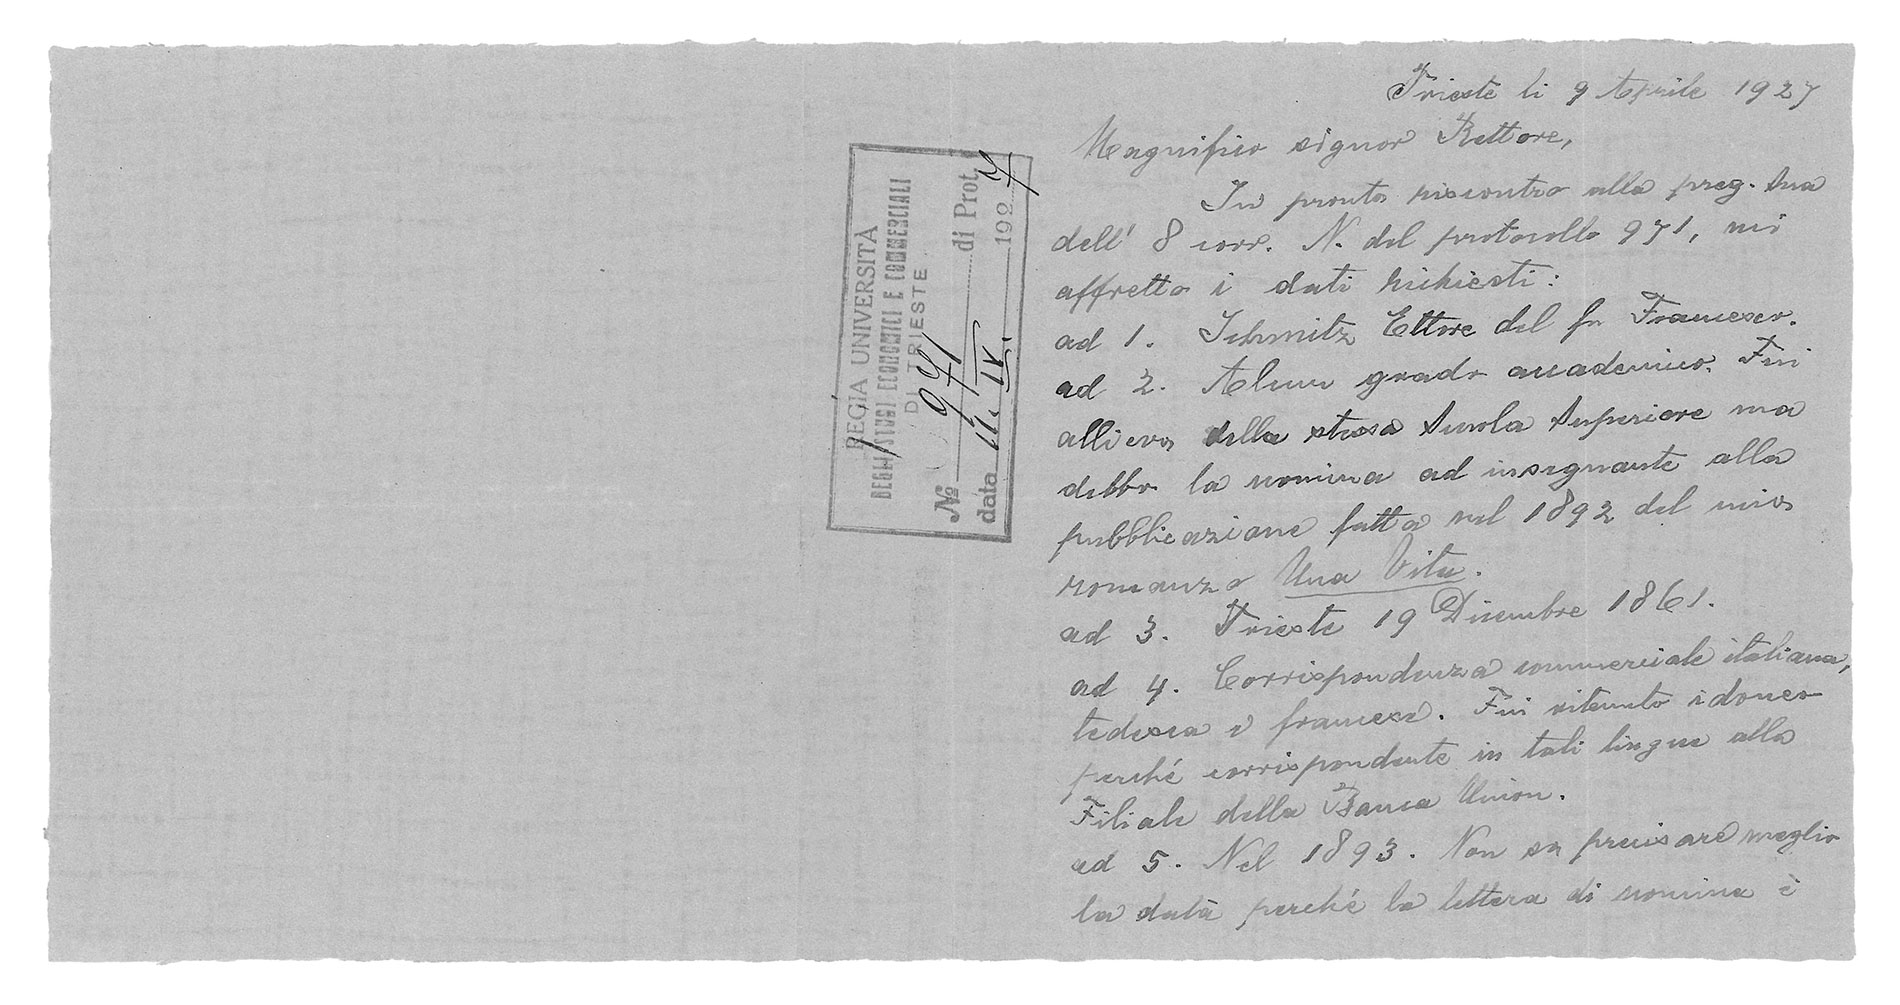 REGIA UNIVERSITÀ
DEGLI STUDI ECONOMICI E COMMERCIALI
DI TRIESTE
No 971 di Prot.
data 11. IV. 1927
Trieste li 9 Aprile 1927
Magnifico signor Rettore,
In pronto riscontro alla preg. Sua
dell' 8 corr. N. del protocollo 971, mi
affretto i dati richiesti:
ad 1. Schmitz Ettore del fu Francesco.
ad 2. Alcun grado accademico. Fui
allievo della stessa Scuola Superiore ma
debbo la nomina ad insegnante alla
pubblicazione fatta nel 1892 del mio
romanzo Una Vita.
ad 3. Trieste 19 Dicembre 1861.
ad 4. Corrispondenza commerciale italiana,
tedesca e francese. Fui ritenuto idoneo
perché corrispondente in tali lingue alla
Filiale della Banca Union.
ad 5. Nel 1893. Non so precisare meglio
la data perché la lettera di nomina è